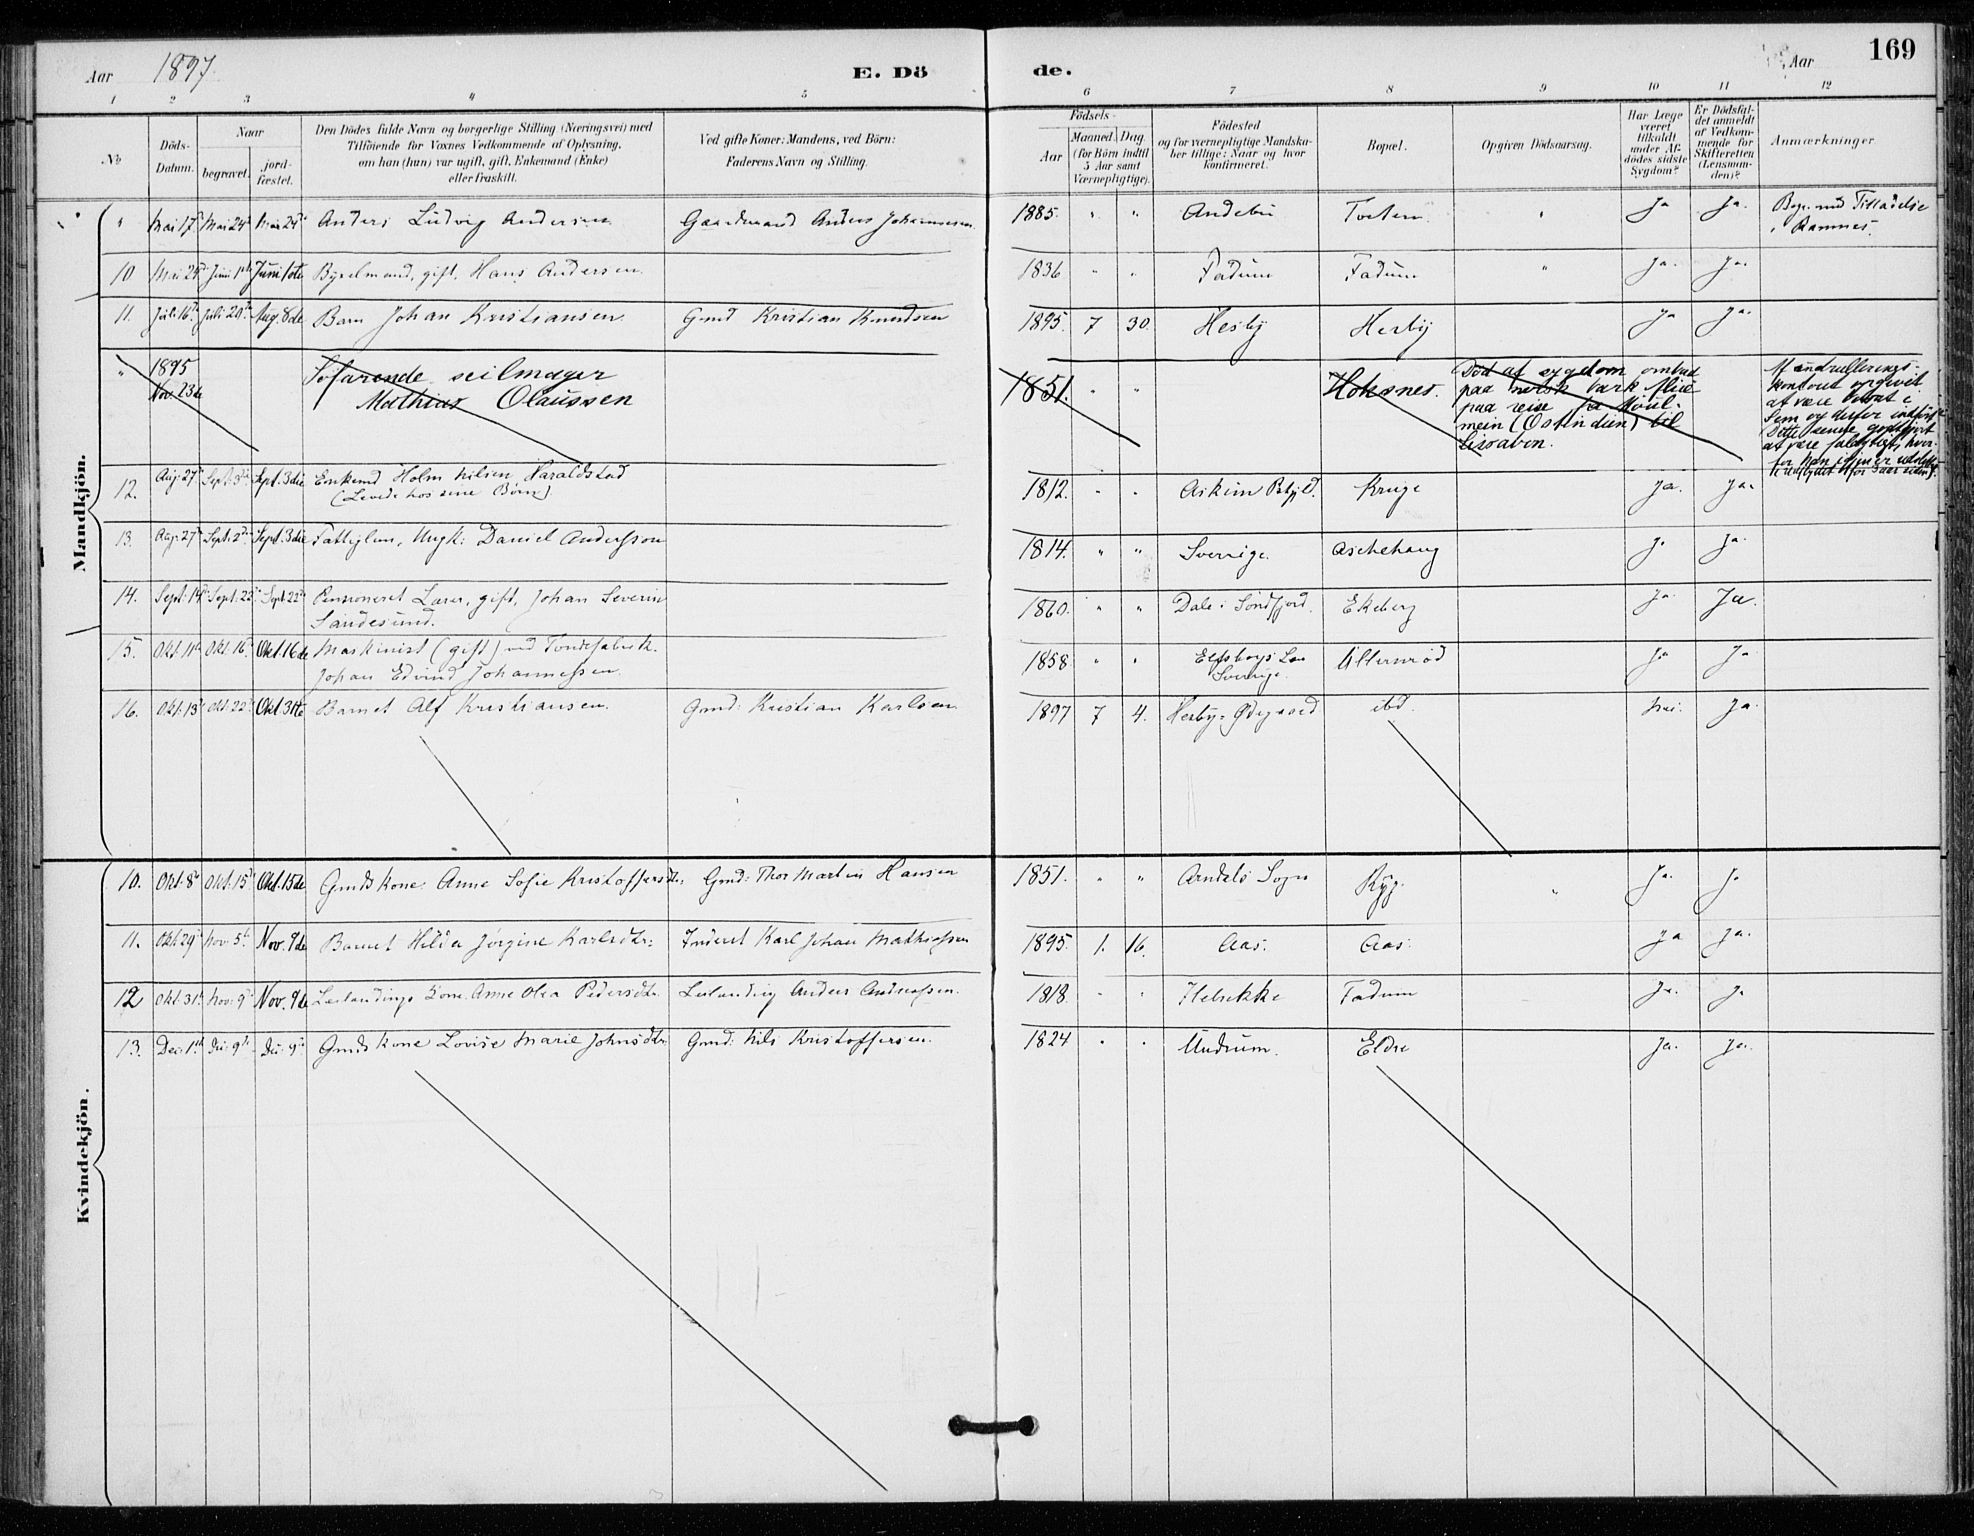 Aar 1897.
E. Dö
de.
Aar
169
1 2 3 4 5
6 7 8 9 10 11 12
No
Döds-Datum.
Naar
begravet.
jord-fæstet.
Den Dödes fulde Navn og borgerlige Stilling (Næringsvei) med
Tilföiende for Voxnes Vedkommende af Oplysning,
om han (hun) var ugift, gift, Enkemand (Enke)
eller fraskilt.
Ved gifte Koner: Mandens, ved Börn:
Faderens Navn og Stilling.
Födsels-
Aar
Maaned. Dag.
(for Börn indtil
5 Aar samt
Værnepligtige).
Födested
og for værnepligtige Mandska-
ber tillige: Naar og hvor
konfirmeret.
Bopæl.
Opgiven Dödsaarsag.
Har Læge
været
tilkaldt
under Af-
dödes sidste
Sygdom?
Er Dödsfal-
det anmeldt
af Vedkom-
mende for
Skifteretten
(Lensman-
den)?
Anmærkninger.
Mandkjön.
" Mai 17 Mai 24 Mai 24 Anders Ludvig Andersen Gaardmand Anders Johannesen 1885. " " Andebu Torten " Ja Ja. Begr. med Tilladelse
i Ramnes.
10 Mai 25 Juni 1ste Juni 1ste Byselmand, gift, Hans Andersen. 1836 " " Fadum Fadum " Ja. Ja.
11. Juli 16 Juli 20 Aug. 8de Barn Johan Kristiansen Gmd Kristian Knudsen 1895. 7 30 Hesby Hesby Ja Ja.
" 1895
Nov. 23de
Söfarende seilmager
Mathias Olaussen
1851. " " Hoksnes.
Död af sygdom ombord
paa norsk bark Alice
paa reise fra Moul-
mein (Ostindien) til
Lissabon.
Af endrulleringst-
kontoret opgivet
at være bosat i
Sem og derfor indført
Dette senere godtgjort
at være feilagtigt, hvor-
for han igjen er udslettet
12. Aug. 27 Sept. 3die Sept. 3die Enkemd Holm Nilsen Haraldstad
(Levede hos sine Börn)
1812. " " Askim Prstjd. Kruge Ja. Ja.
13. Aug. 27 Sept. 2 Sept. 3die Fattiglem, Ungk: Daniel Andersson 1814. " " Sverrige. Aschehaug Ja Ja.
14. Sept. 14 Sept. 22 Sept. 22 Pensioneret Lærer, gift, Johan Severin
Sandesund.
1860. " " Dale i Söndfjord. Ekeberg Ja. Ja.
15. Okt. 11 Okt. 16 Okt. 16de Maskinist (gift) ved Tøndefabrik.
Johan Edvind Johannessen.
1858 " " Elfsborgs Len
Sverrige.
Ullernröd Ja Ja
16. Okt. 13 Okt. 22 Okt. 31te Barnet Alf Kristiansen. Gmd: Kristian Karlsen. 1897 7 4. Hesby-Ødegaard ibd. Nei. Ja.
Kvindekjön.
10. Okt. 8 Okt. 15 Okt. 15de Gmds kone: Anne Sofie Kristoffersdtr: Gmd: Thor Martin Hansen 1851. " " Arndals Sogn Ryg. " Ja. Ja
11. Okt. 29 Nov. 5 Nov. 9de Barnet Hilda Jørgine Karlsdtr: Inderst Karl Johan Mathiassen 1895. 1. 16. Aas. Aas. Ja Ja.
12 Okt. 31 Nov. 9 Nov. 9de Leilændings Kone Anne Olea Pedersdtr. Leilænding Anders Andreassen. 1818. " " Helrekke Fadum Ja. Ja
13. Dec. 1ste Dec. 9de Dec. 9de Gmds kone Lovise Marie Johnsdtr. Gmd: Nils Kristoffersen. 1824 " " Undrum. Eldre Ja. Ja.